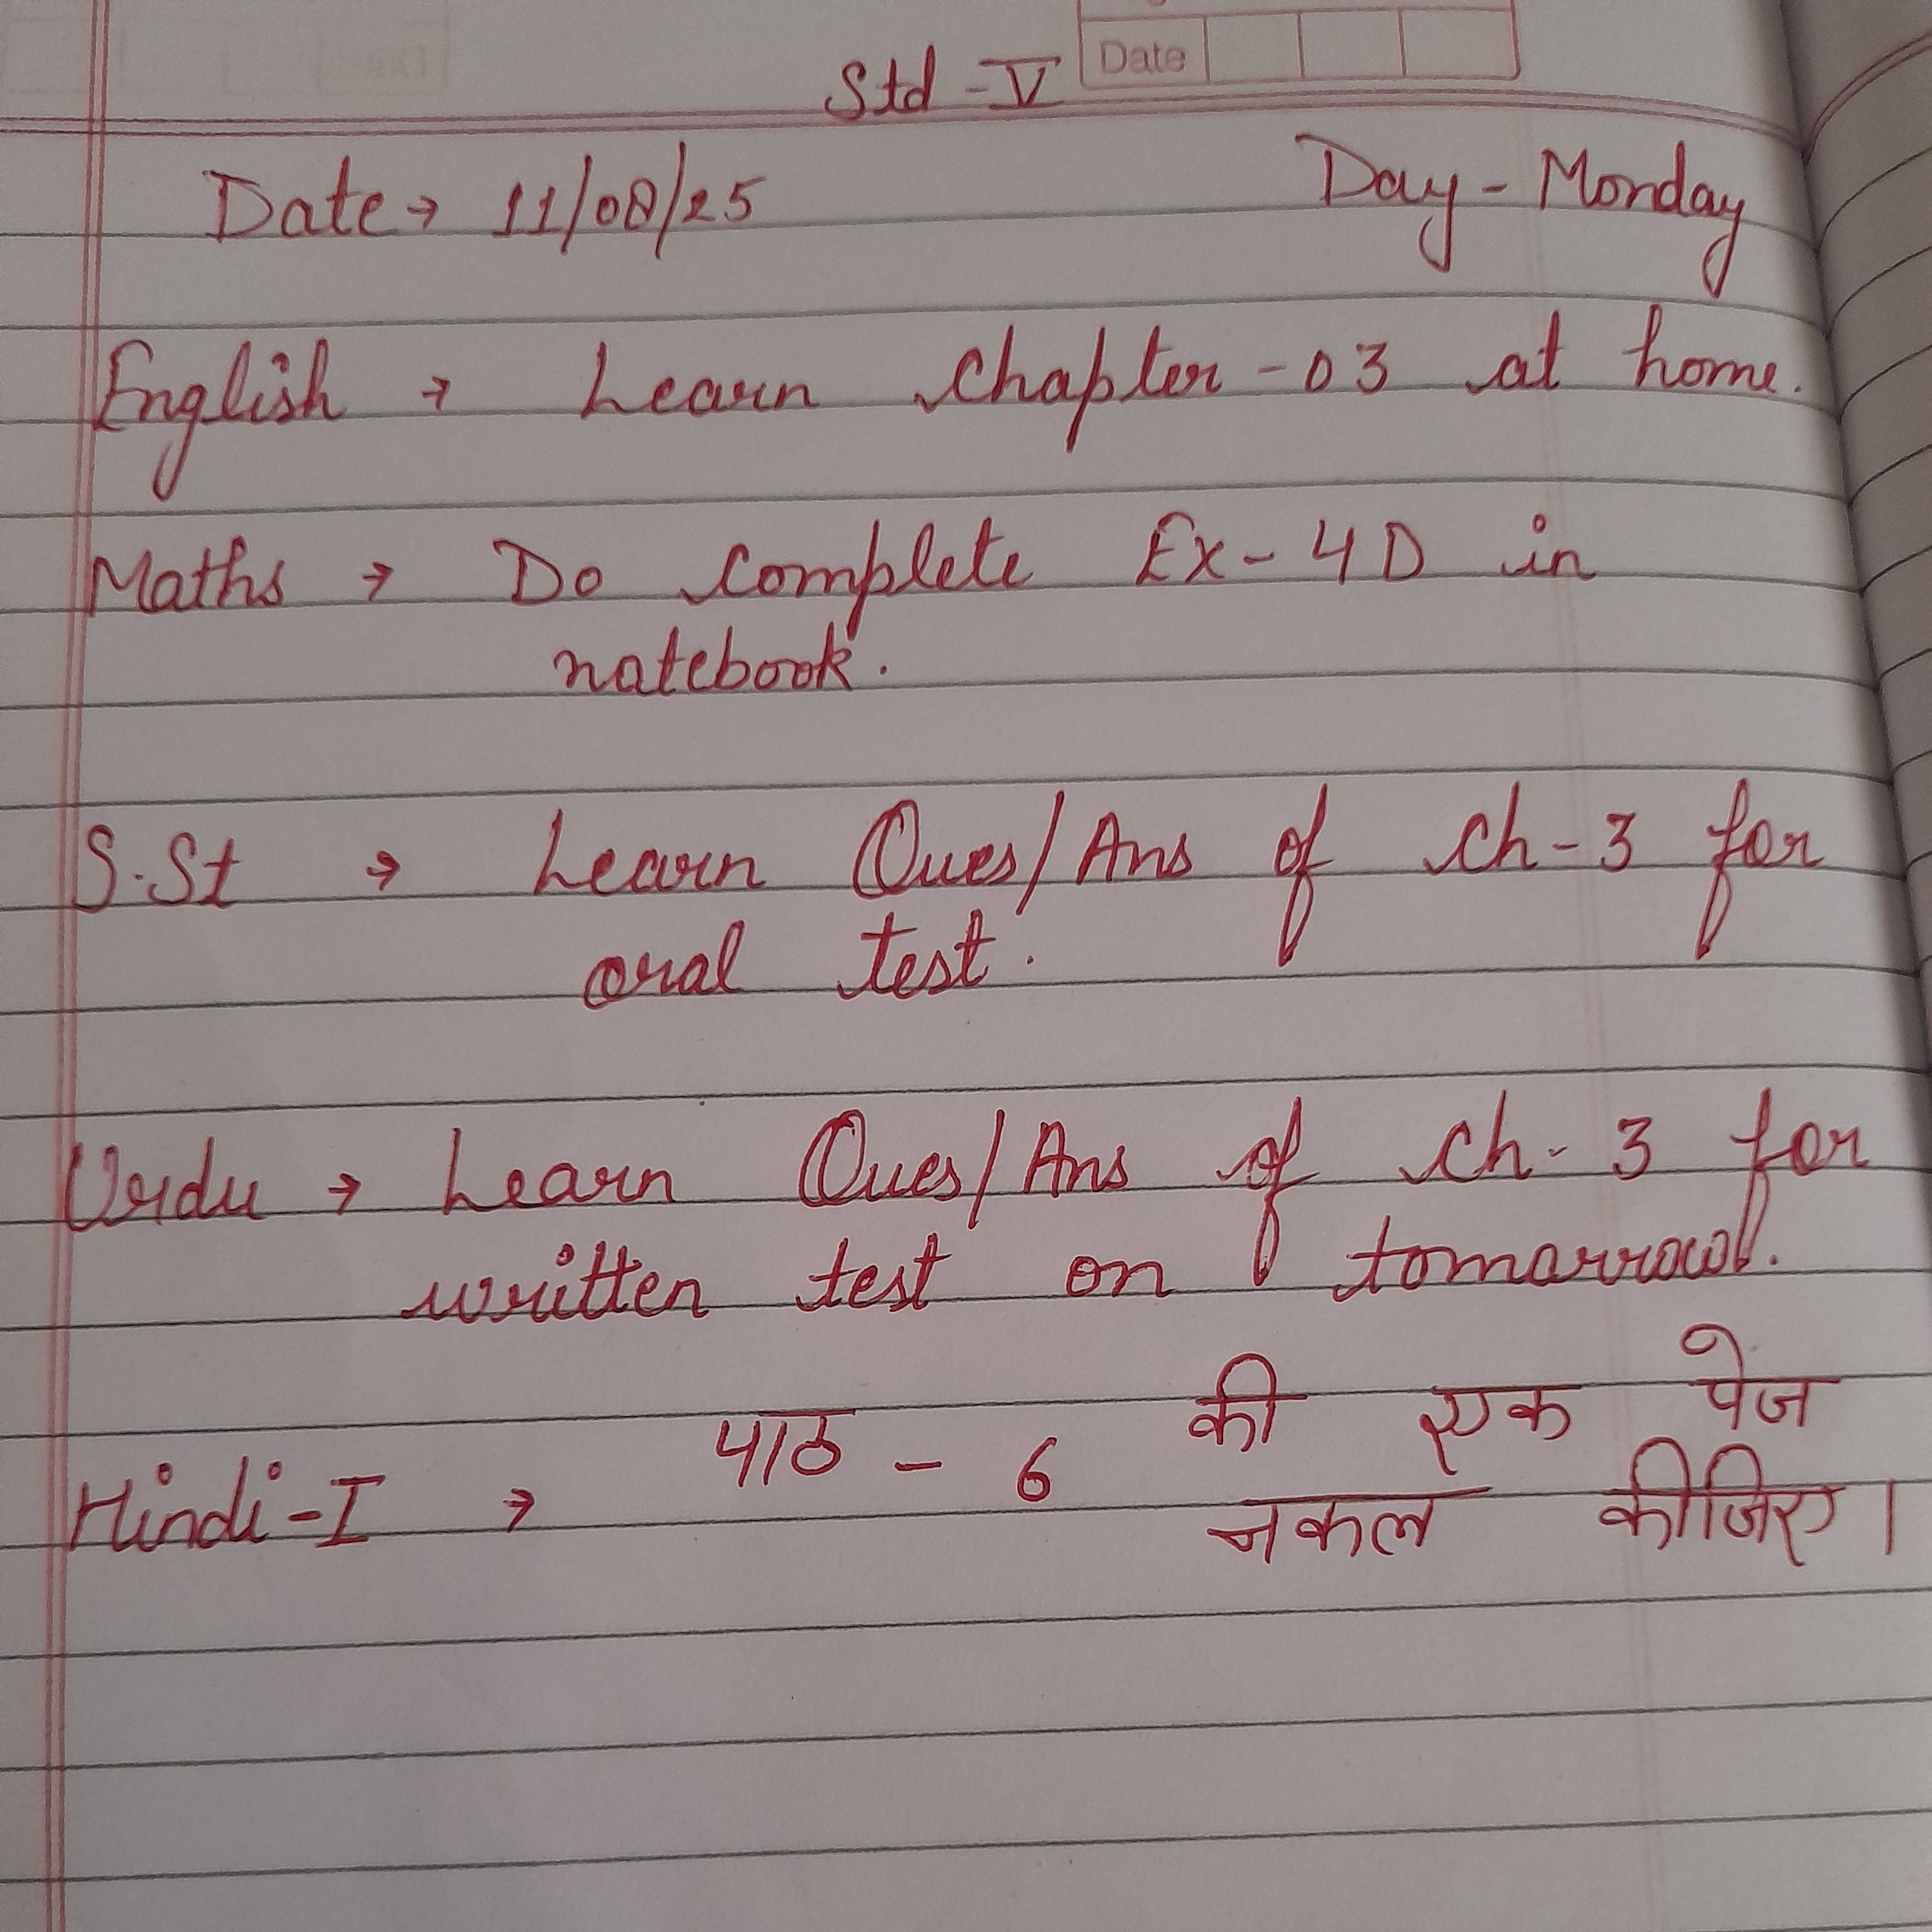 Std - V
Date
Date → 11/08/25 Day - Monday
English → Learn Chapter - 03 at home.
Maths → Do complete Ex - 4D in
notebook.
S.St → Learn Ques/Ans of ch - 3 for
oral test.
Urdu → Learn Ques/Ans of ch - 3 for
written test on tomorrow.
Hindi - I → पाठ - 6 की एक पेज
नकल कीजिए।